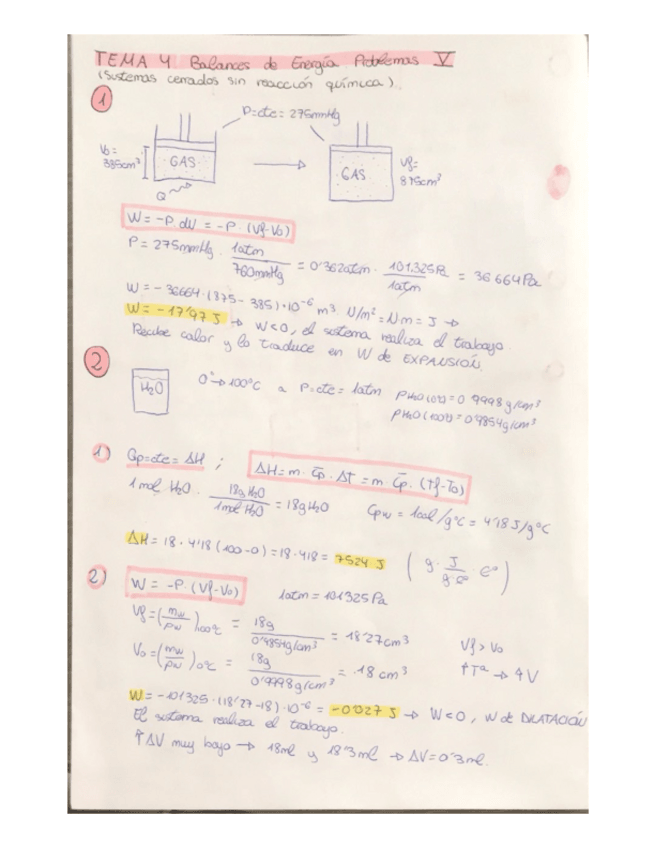 TEMA 4 Balances de Energía. Problemas V
(Sistemas cerrados sin reacción química).
1
P=cte= 275mmHg
V0= 385cm³
GAS
Q
GAS
Vf= 875cm³
W = -P dV = -P · (Vf-V0)
P = 275mmHg · 1atm / 760mmHg = 0'362atm · 101.325Pa / 1atm = 36664Pa
W = - 36664 · (875 - 385) · 10⁻⁶ m³ N/m² = N m = J →
W = -17'97 J → W<0, el sistema realiza el trabajo.
Recibe calor y lo traduce en W de EXPANSIÓN.
2
H₂O
0°→100°C a P=cte= 1atm ρH₂O(0°)= 0'9998g/cm³
ρH₂O(100°)= 0'9854g/cm³
1) Qp=cte= ΔH ; ΔH= m · Cp · ΔT = m · Cp · (Tf-T0)
1 mol H₂O · 18g H₂O / 1mol H₂O = 18g H₂O Cpw = 1cal/g°C = 4'18J/g°C
ΔH = 18 · 4'18 (100-0) = 18 · 418 = 7524 J ( g · J / g·C° · C° )
2) W = -P · (Vf-V0) 1atm = 101325Pa
Vf = (mw / ρw)100°C = 18g / 0'9854g/cm³ = 18'27cm³ Vf > V0
V0 = (mw / ρw)0°C = 18g / 0'9998g/cm³ = 18 cm³ ↑Tª → ↑V
W = -101325 · (18'27-18) · 10⁻⁶ = -0'027 J → W<0, W de DILATACIÓN
El sistema realiza el trabajo.
↑ΔV muy bajo → 18ml y 18'3ml → ΔV=0'3ml.